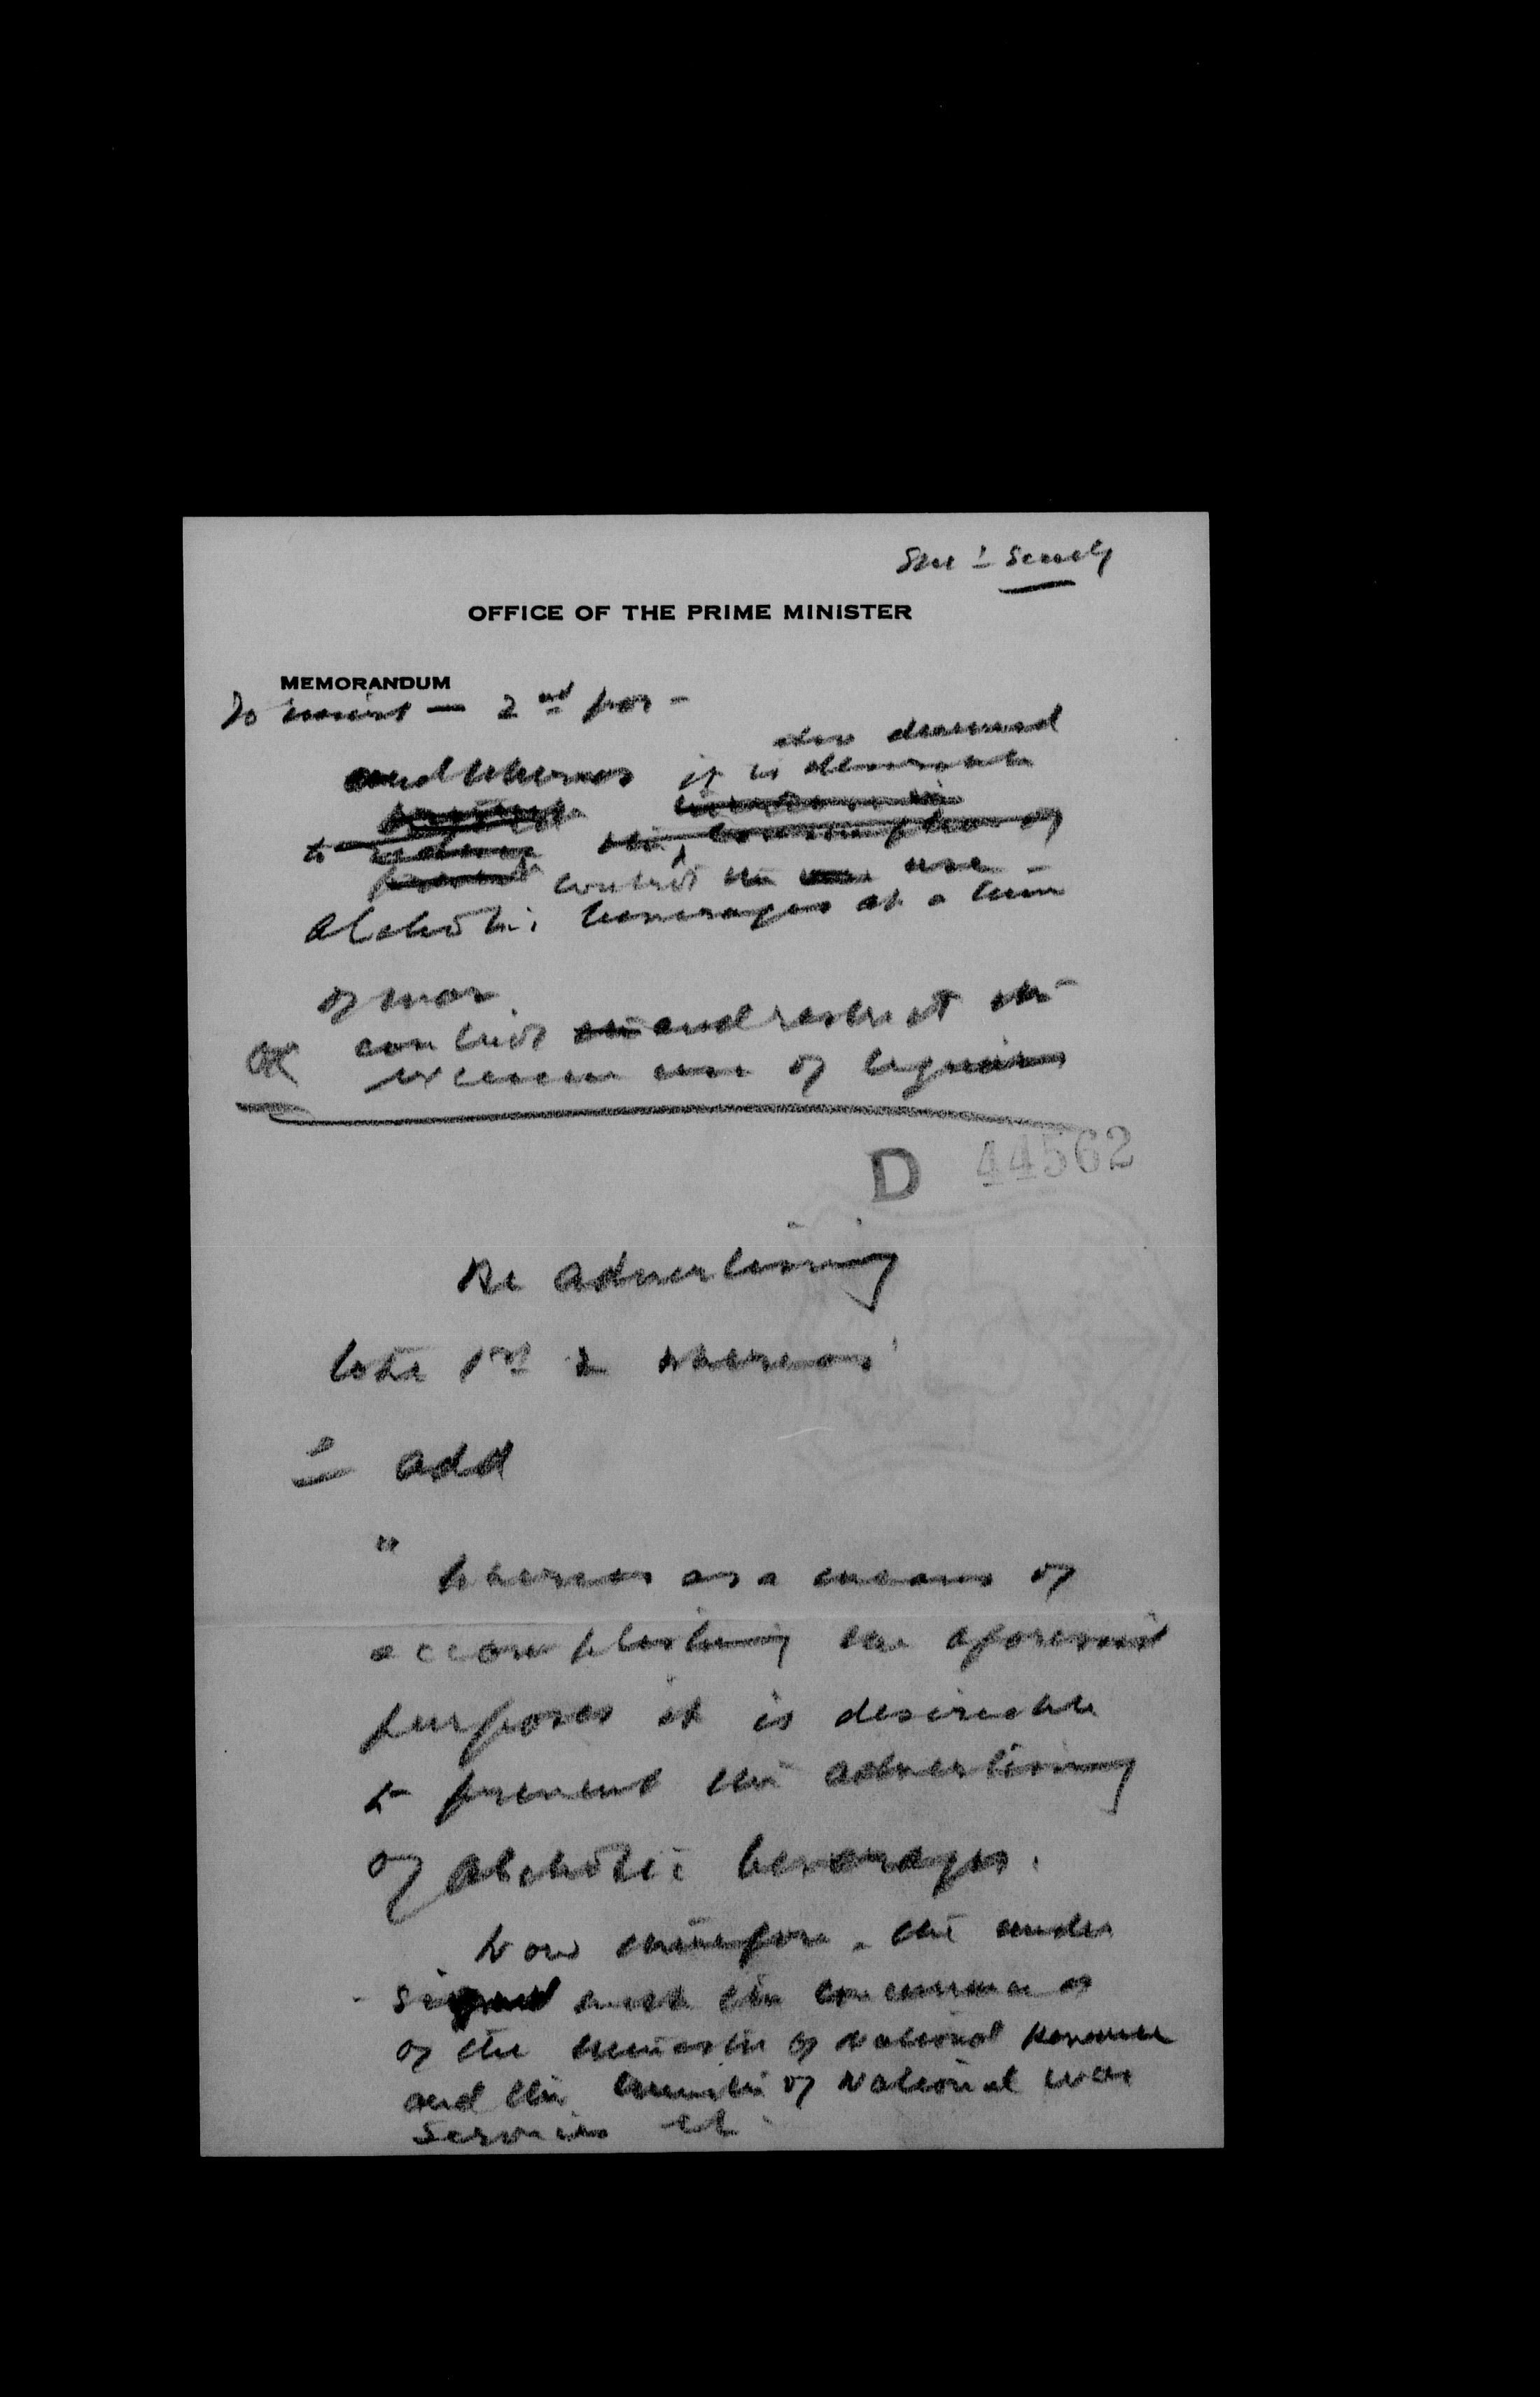 OFFICE OF THE PRIME MINISTER
MEMORANDUM
To insert — 2nd par -
deemed
and whereas it is desirable
to reduce the consumption of
control the use
alcoholic beverages at a time
of war
control and restrict the
excessive use of liquors
D 44562
Re advertising
take 1st 2 whereas
add
" whereas as a means of
accomplishing the aforesaid
purposes it is desirable
to prevent the advertising
of alcoholic beverages.
Now therefore, the under
signed with the concurrence
of the Minister of National Revenue
and the Minister of National War
Services